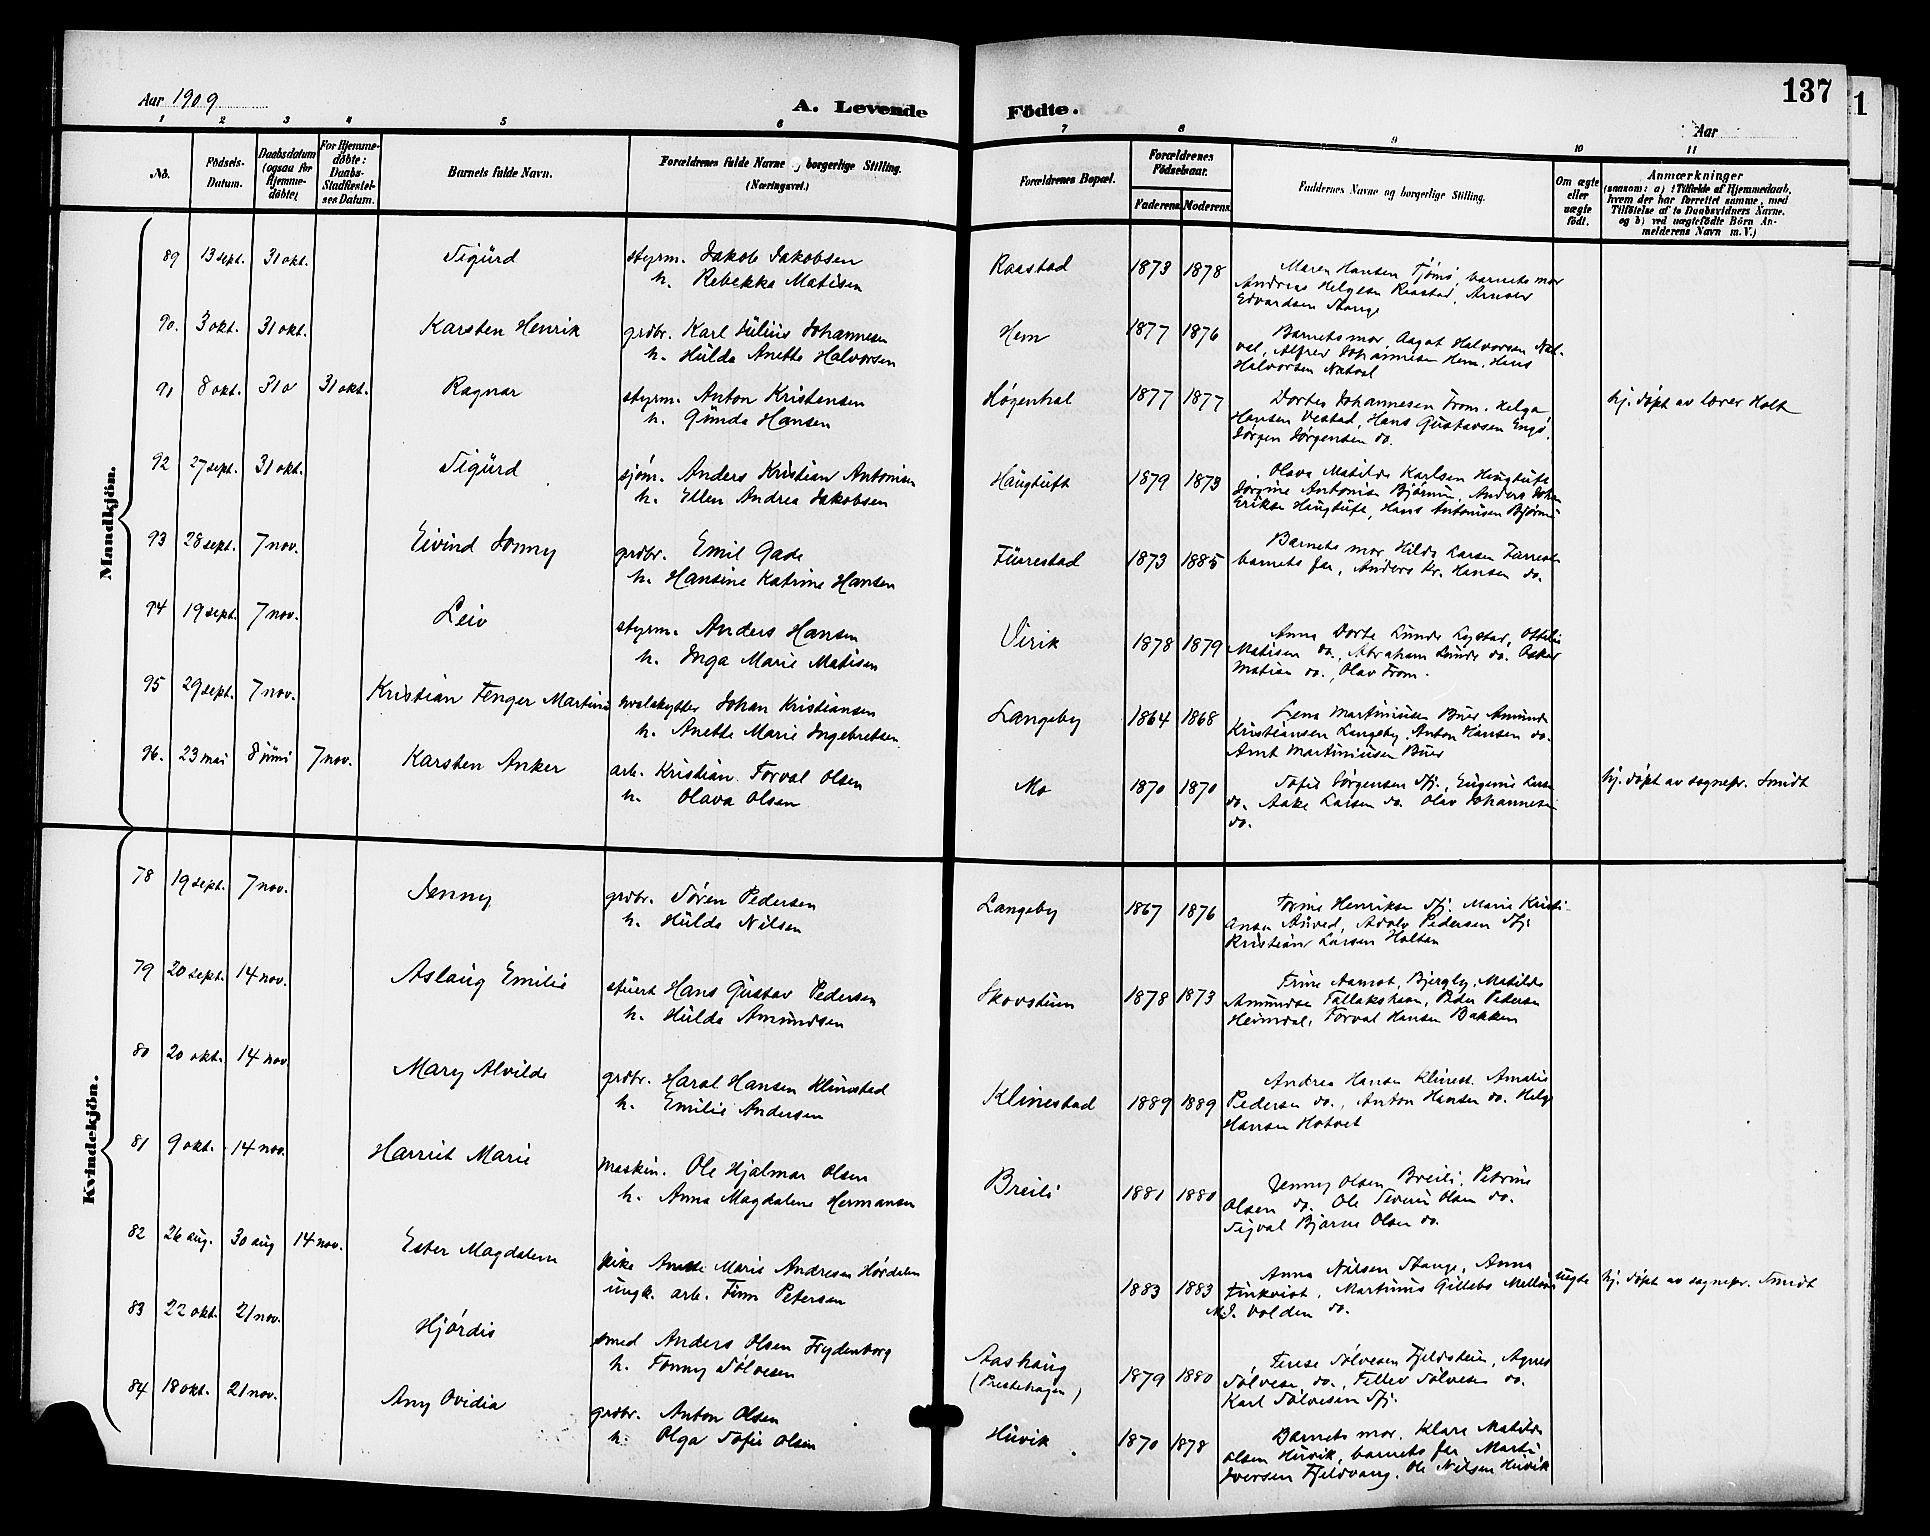 137
Aar 1909
A. Levende Födte.
Aar
1 2 3 4 5 6 7 8 9 10 11
No.
Födsels-
Datum.
Daabsdatum
(ogsaa for
Hjemme-
döbte)
For Hjemme-
döbte:
Daabs-
Stadfæstel-
ses Datum.
Barnets fulde Navn.
Forældrenes fulde Navne og borgerlige Stilling.
(Næringsvei.)
Forældrenes Bopæl.
Forældrenes
Födselsaar.
Faderens. Moderens.
Faddernes Navne og borgerlige Stilling.
Om ægte
eller
uægte
födt.
Anmærkninger
(saasom: a) i Tilfælde af Hjemmedaab,
hvem der har forrettet samme, med
Tilföielse af to Daabsvidners Navne.
og b) ved uægtefödte Börn An-
melderens Navn m. V.)
Mandkjön.
89 13 sept. 31 okt. Sigurd styrm. Jakob Jakobsen Raastad 1873 1878 Maren Hansen Tjömö, barnets mor
h. Rebekka Matisen Andreas Helgesen Raastad, Arnold
Edvardsen Stange
90. 3 okt. 31 okt. Karsten Henrik grdbr. Karl Julius Johannesen Hem 1877 1876 Barnets mor, Aagot Halvorsen Nat-
h. Hulda Anette Halvorsen val, Alfred Johannesen Hem, Hans
Halvorsen Natval
91 8 okt. 31 o 31 okt. Ragnar styrm. Anton Kristensen Högentral 1877 1877 Dortea Johannesen From, Helga hj. döpt av lærer Holt
h. Gunda Hansen Hansen Vestad, Hans Gustavsen Engö,
Jörgen Jörgensen do.
92 27 sept. 31 okt. Sigurd sjöm. Anders Kristian Antonisen Haugtuft 1879 1873 Olava Matilde Karlsen Haugtuft
h. Ellen Andrea Jakobsen Jörgine Antonisen Bjørnum, Anders Johan
Eriksen Haugtuft, Hans Antonisen Bjørnum
93 28 sept. 7 nov. Eivind Jonny grdbr. Emil Gade Furrestad 1873 1885 Barnets mor Hilda Larsen Furrestad
h. Hansine Katrine Hansen barnets far, Anders Kr. Hansen do.
94 19 sept. 7 nov. Leiv styrm. Anders Hansen Virik 1878 1879 Anna Dorte Lunde Lystad, Ottilie
h. Inga Marie Matisen Matisen do., Abraham Lunde do. Oskar
Matisen do., Olav From.
95 29 sept. 7 nov. Kristian Fenger Martinius hvalskytter Johan Kristiansen Langeby 1864 1868 Lena Martiniusen Buer Amunda
h. Anette Marie Ingebretsen Kristiansen Langeby, Anton Hansen do.
Arnt Martiniusen Buer
96. 23 mai 8 juni 7 nov. Karsten Anker arb. Kristian Torval Olsen Mo 1870 1870 Sofie Jörgensen Stj., Eugenie Larsen hj. döpt av sognepr. Smidt
h. Olava Olsen do. Aake Larsen do. Olav Johannesen
do.
Kvindekjön.
78 19 sept. 7 nov. Jenny grdbr. Sören Pedersen Langeby 1867 1876 Torine Henriksen Stj. Marie Kristi-
h. Hulda Nilsen ansen Auved, Adolv Pedersen Stj.
Kristian Larsen Holtan
79 20 sept. 14 nov. Aslaug Emilie stuert Hans Gustav Pedersen Skovstuen 1878 1873 Trine Aamot, Bjergby, Matilde
h. Hulda Amundsen Amundsen Tallakshavn, Peder Pedersen
Heimdal, Torval Hansen Bakken
80 20 okt. 14 nov. Mary Alvilde grdbr. Haral Hansen Klinestad Klinestad 1889 1889 Andrea Hansen Klinest. Amalie
h. Emilie Andersen Pedersen do., Anton Hansen do. Helge
Hansen Hotvet
81 9 okt. 14 nov. Harriet Marie maskin. Ole Hjalmar Olsen Breili 1881 1880 Jenny Olsen Breili, Petrine
h. Anna Magdalene Hermansen Olsen do. Ole Severin Olsen do.
Sigval Bjarne Olsen do.
82 26 aug. 30 aug 14 nov. Ester Magdalene pike Anette Marie Andresen Hördalen 1883 1883 Anna Nilsen Stange, Anna uegte hj. döpt av sognepr. Smidt
ungk. arb. Finn Petersen Finkvist, Martinus Gillebo Mellom
M.J. Volden do.
83 22 okt. 21 nov. Hjördis smed Anders Olsen Frydenborg Aashaug 1879 1880 Terese Sölvesen Fjeldstuen, Agnes
h. Fanny Sölvesen (Prestehagen) Sölvesen do., Tellev Sölvesen do.
Karl Sölvesen Stj.
84 18 okt. 21 nov. Any Ovidia grdbr. Anton Olsen Huvik 1870 1878 Barnets mor, Klara Matilde
h. Olga Sofie Olsen Olsen Huvik, barnets far, Martin
Iversen Fjeldvang, Ole Nilsen Huvik